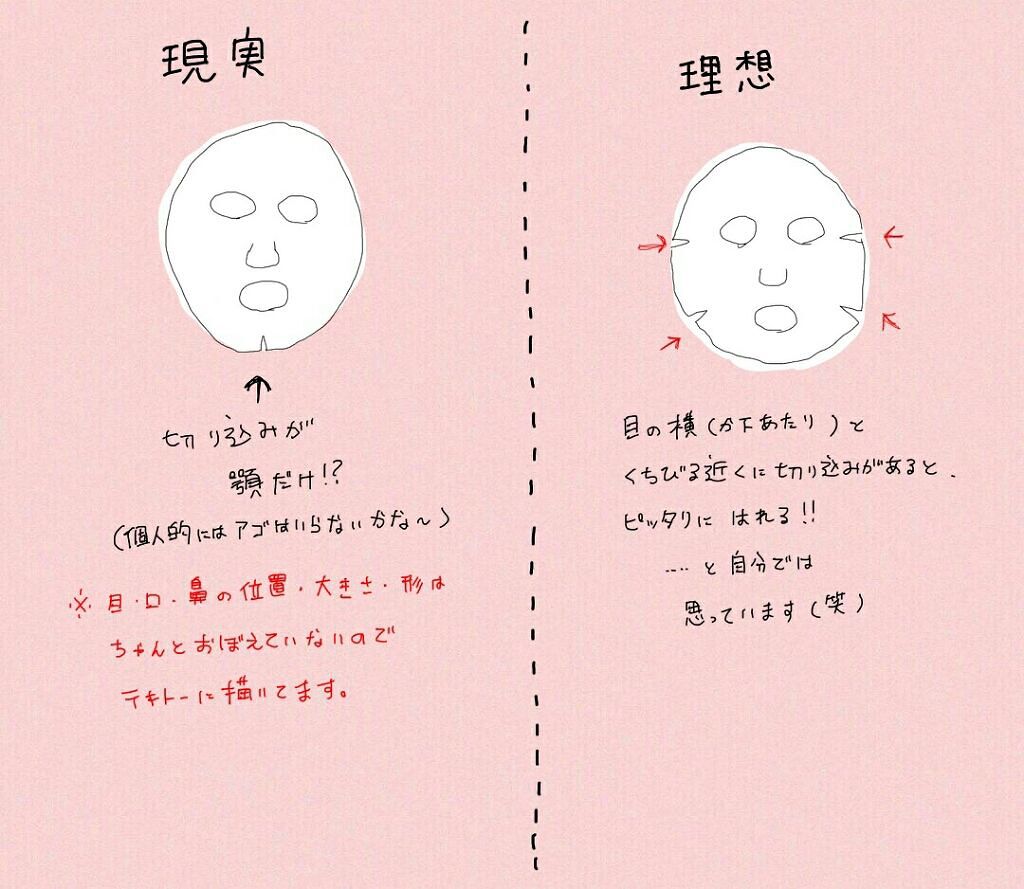 現実
切り込みが
顎だけ!?
(個人的にはアゴはいらないかな〜)
※目・口・鼻の位置・大きさ・形は
ちゃんとおぼえていないので
テキトーに描いてます。
理想
目の横(か下あたり)と
くちびる近くに切り込みがあると、
ピッタリに はれる!!
‥‥と自分では
思っています(笑)